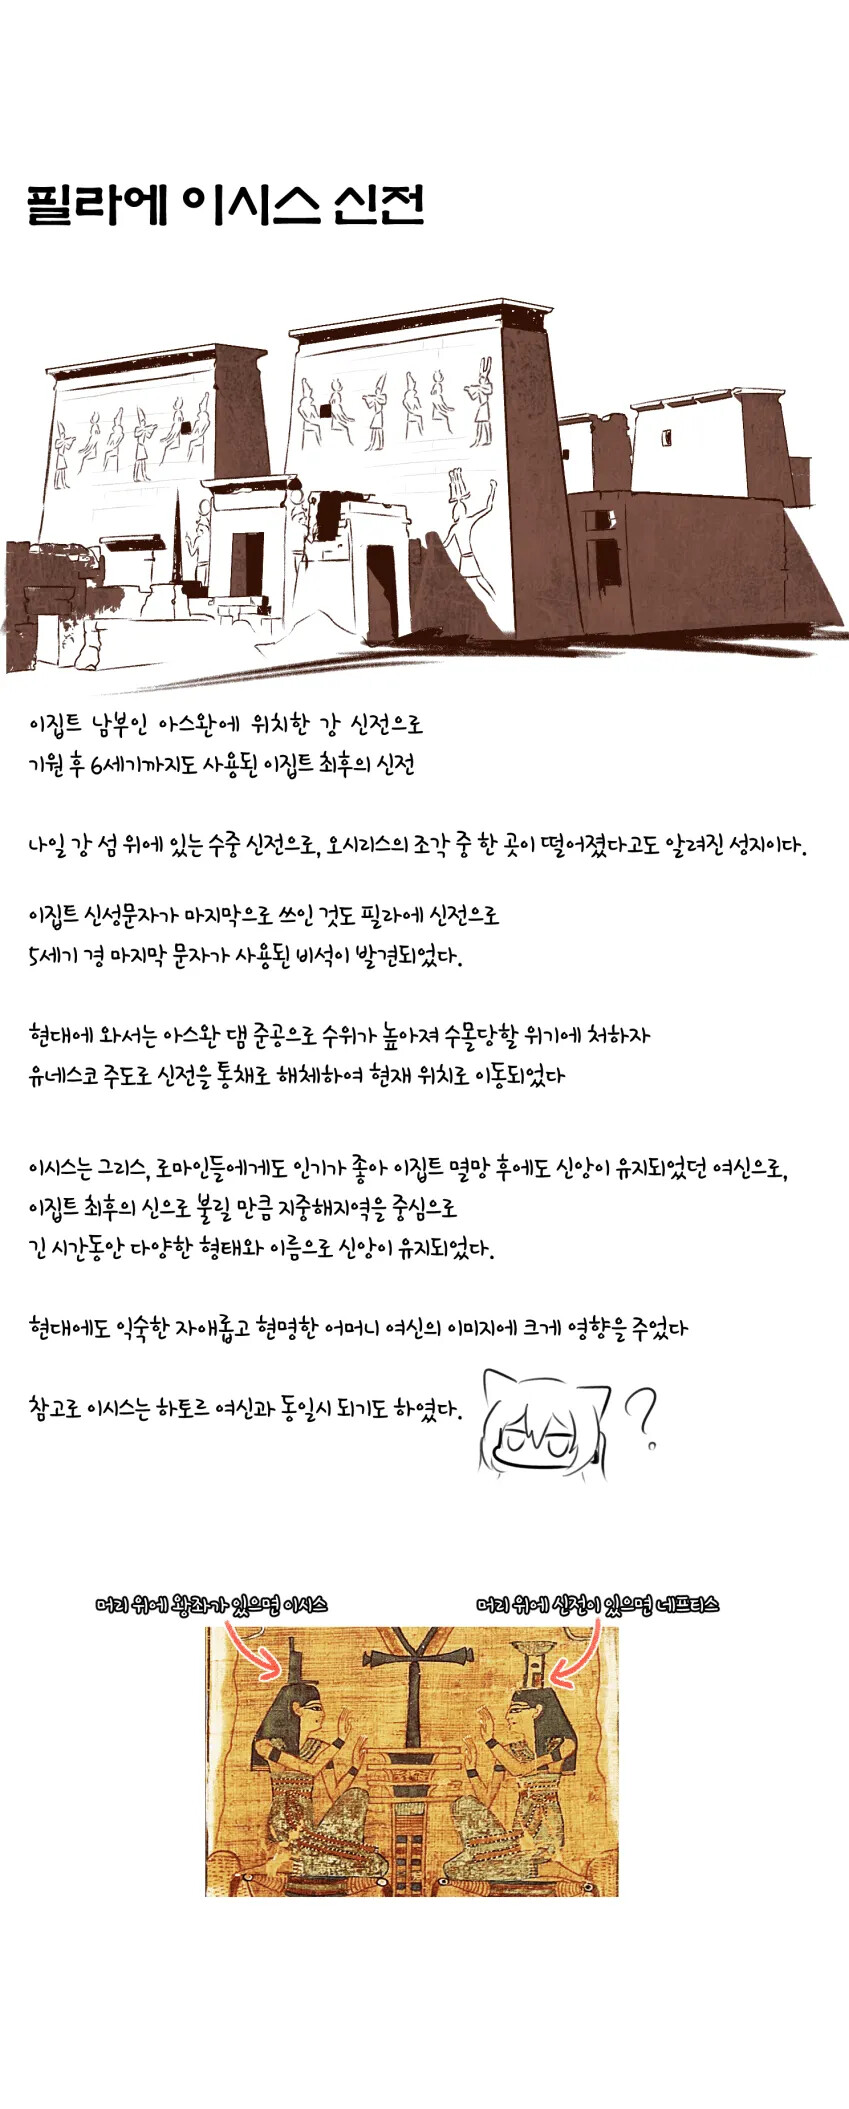 필라에 이시스 신전
이집트 남부인 아스완에 위치한 강 신전으로
기원 후 6세기까지도 사용된 이집트 최후의 신전
나일 강 섬 위에 있는 수중 신전으로, 오시리스의 조각 중 한 곳이 떨어졌다고도 알려진 성지이다.
이집트 신성문자가 마지막으로 쓰인 것도 필라에 신전으로
5세기 경 마지막 문자가 사용된 비석이 발견되었다.
현대에 와서는 아스완 댐 준공으로 수위가 높아져 수몰당할 위기에 처하자
유네스코 주도로 신전을 통채로 해체하여 현재 위치로 이동되었다
이시스는 그리스, 로마인들에게도 인기가 좋아 이집트 멸망 후에도 신앙이 유지되었던 여신으로,
이집트 최후의 신으로 불릴 만큼 지중해지역을 중심으로
긴 시간동안 다양한 형태와 이름으로 신앙이 유지되었다.
현대에도 익숙한 자애롭고 현명한 어머니 여신의 이미지에 크게 영향을 주었다
참고로 이시스는 하토르 여신과 동일시 되기도 하였다.
?
머리 위에 왕좌가 있으면 이시스
머리 위에 신전이 있으면 네프티스